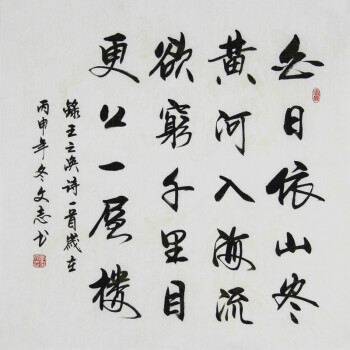 白日依山尽
黄河入海流
欲窮千里目
更上一層樓
錄王之渙诗一首歲在
丙申年冬文志书